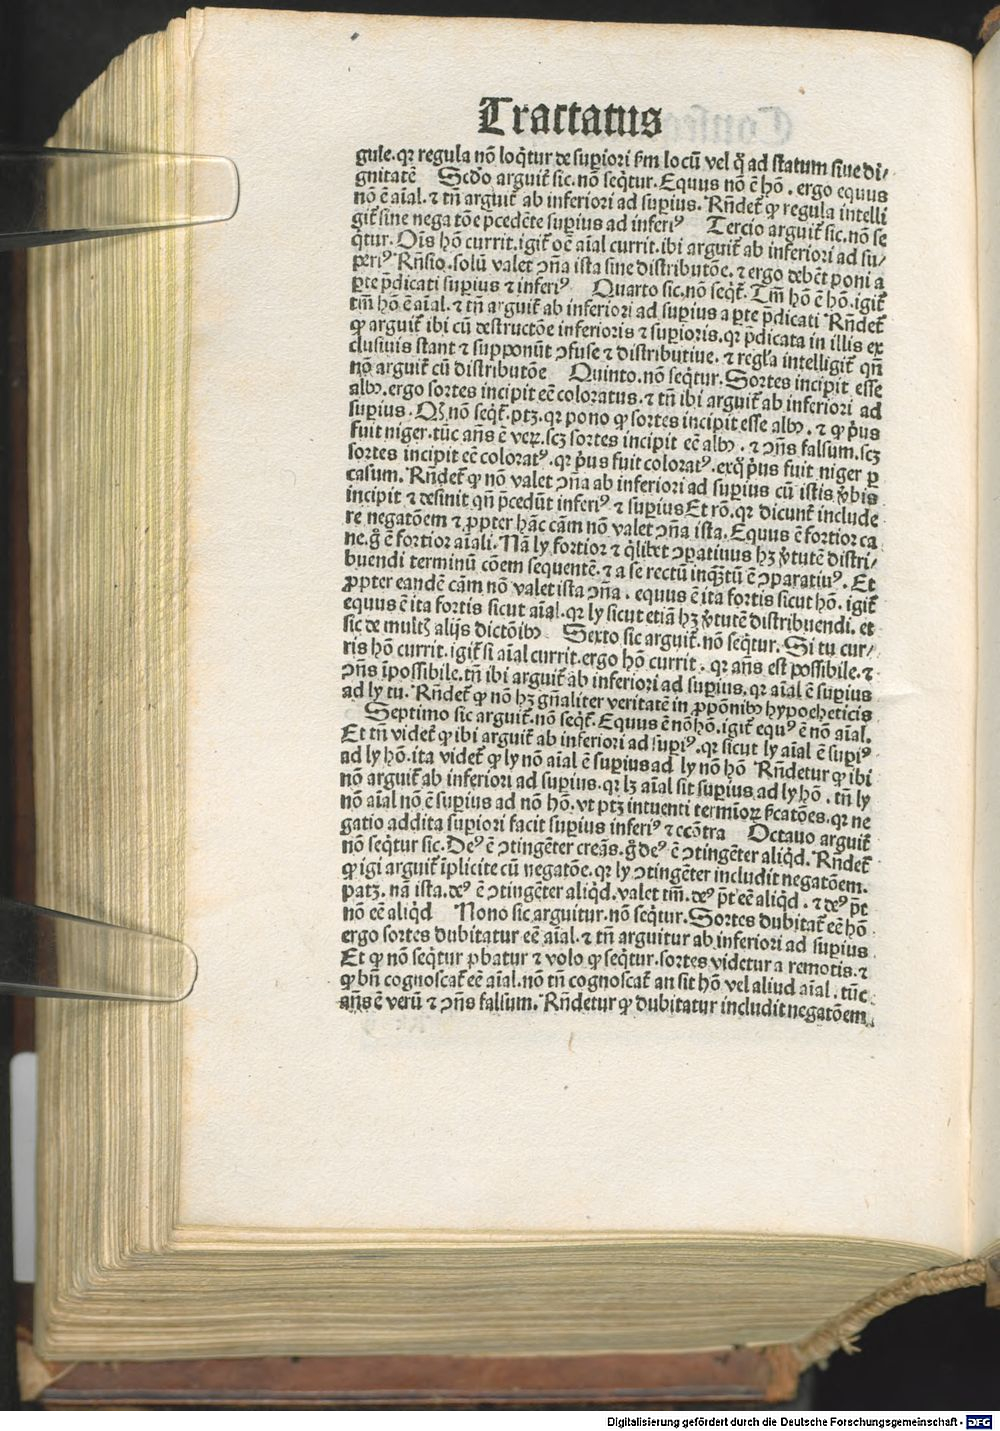 Tractatus
gule. qꝛ regula nõ loq̃tur de supiori s̃m locũ vel q̃ ad statum siue di⸗
gnitatẽ Scḋo arguit̃ sic. nõ seq̃tur. Equus nõ ẽ hõ. ergo equus
nõ ẽ aĩal. ⁊ tñ arguit̃ ab inferiori ad supius. Rñdet̃ ꝙ regula intelli
git̃ sine negatõe p̃cedẽte supius ad inferiꝰ Tercio arguit̃ sic. nõ se
q̃tur. Oĩs hõ currit. igit̃ oẽ aĩal currit. ibi arguit̃ ab inferiori ad su⸗
periꝰ Rñsio. solũ valet ↄ̃na ista sine distributõe. ⁊ ergo debẽt poni a
ꝑte p̃dicati supius ⁊ inferiꝰ Quarto sic. nõ seq̃t̃. Tm̃ hõ ẽ hõ. igit̃
tm̃ hõ ẽ aĩal. ⁊ tñ arguit̃ ab inferiori ad supius a ꝑte p̃dicati Rñdet̃
ꝙ arguit̃ ibi cũ destructõe inferioris ⁊ supioris. qꝛ p̃dicata in illis ex
clusiuis stant ⁊ supponũt ↄfuse ⁊ distributiue. ⁊ regl̃a intelligit̃ qñ
nõ arguit̃ cũ distributõe Quinto. nõ seq̃tur. Sortes incipit esse
albꝰ. ergo sortes incipit eẽ coloratus. ⁊ tñ ibi arguit̃ ab inferiori ad
supius. Qꝫ nõ seq̃t̃. ptꝫ. qꝛ pono ꝙ sortes incipit esse albꝰ. ⁊ ꝙ p̃us
fuit niger. tũc añs ẽ veꝝ. scꝫ sortes incipit eẽ albꝰ. ⁊ ↄ̃ns falsum. scꝫ
sortes incipit eẽ coloratꝰ. qꝛ p̃us fuit coloratꝰ. exq̊ p̃us fuit niger ꝑ
casum. Rñdet̃ ꝙ nõ valet ↄ̃na ab inferiori ad supius cũ istis v̾bis
incipit ⁊ desinit qñ p̃cedũt inferiꝰ ⁊ supius Et rõ. qꝛ dicunt̃ include
re negatõem ⁊ ꝓpter hãc cãm nõ valet ↄ̃na ista. Equus ẽ fortior ca
ne. g̊ ẽ fortior aĩali. Nã ly fortior ⁊ q̃libet ↄꝑatiuus hꝫ v̾tutẽ distri⸗
buendi terminũ cõem sequentẽ. ⁊ a se rectũ inq̃ꝫtũ ẽ ↄparatiuꝰ. Et
ꝓpter eandẽ cãm nõ valet ista ↄ̃na. equus ẽ ita fortis sicut hõ. igit̃
equus ẽ ita fortis sicut aĩal. qꝛ ly sicut etiã hꝫ v̾tutẽ distribuendi. et
sic de multꝭ alijs dictõibꝰ Sexto sic arguit̃. nõ seq̃tur. Si tu cur⸗
ris hõ currit. igit̃ si aĩal currit. ergo hõ currit. qꝛ añs est possibile. ⁊
ↄ̃ns ĩpossibile. tñ ibi arguit̃ ab inferiori ad supius. qꝛ aĩal ẽ supius
ad ly tu. Rñdet̃ ꝙ nõ hꝫ gñaliter veritatẽ in ꝓpõnibꝰ hypotheticis
Septimo sic arguit̃. nõ seq̃t̃. Equus ẽ nõ hõ. igit̃ equꝰ ẽ nõ aĩal.
Et tñ videt̃ ꝙ ibi arguit̃ ab inferiori ad supiꝰ. qꝛ sicut ly aĩal ẽ supiꝰ
ad ly hõ. ita videt̃ ꝙ ly nõ aĩal ẽ supius ad ly nõ hõ Rñdetur ꝙ ibi
nõ arguit̃ ab inferiori ad supius. qꝛ lꝫ aĩal sit supius ad ly hõ. tñ ly
nõ aĩal nõ ẽ supius ad nõ hõ. vt ptꝫ intuenti termioꝝ s̃catões. qꝛ ne
gatio addita supiori facit supius inferiꝰ ⁊ ecõtra Octauo arguit̃
nõ seq̃tur sic. Deꝰ ẽ ↄtingẽter creãs. g̊ deꝰ ẽ ↄtingẽter aliq̃d. Rñdet̃
ꝙ igi arguit̃ ĩplicite cũ negatõe. qꝛ ly ↄtingẽter includit negatõem.
patꝫ. nã ista. deꝰ ẽ ↄtingẽter aliq̃d. valet tm̃. deꝰ p̃t eẽ aliq̃d. ⁊ deꝰ p̃t
nõ eẽ aliq̃d Nono sic arguitur. nõ seq̃tur. Sortes dubitat̃ eẽ hõ
ergo sortes dubitatur eẽ aĩal. ⁊ tñ arguitur ab inferiori ad supius
Et ꝙ nõ seq̃tur ꝓbatur ⁊ volo ꝙ seq̃tur. sortes videtur a remotis. ⁊
ꝙ bñ cognoscat̃ eẽ aĩal. nõ tñ cognoscat̃ an sit hõ vel aliud aĩal. tũc
añs ẽ verũ ⁊ ↄ̃ns falsum. Rñdetur ꝙ dubitatur includit negatõem
Digitalisierung gefördert durch die Deutsche Forschungsgemeinschaft - DFG